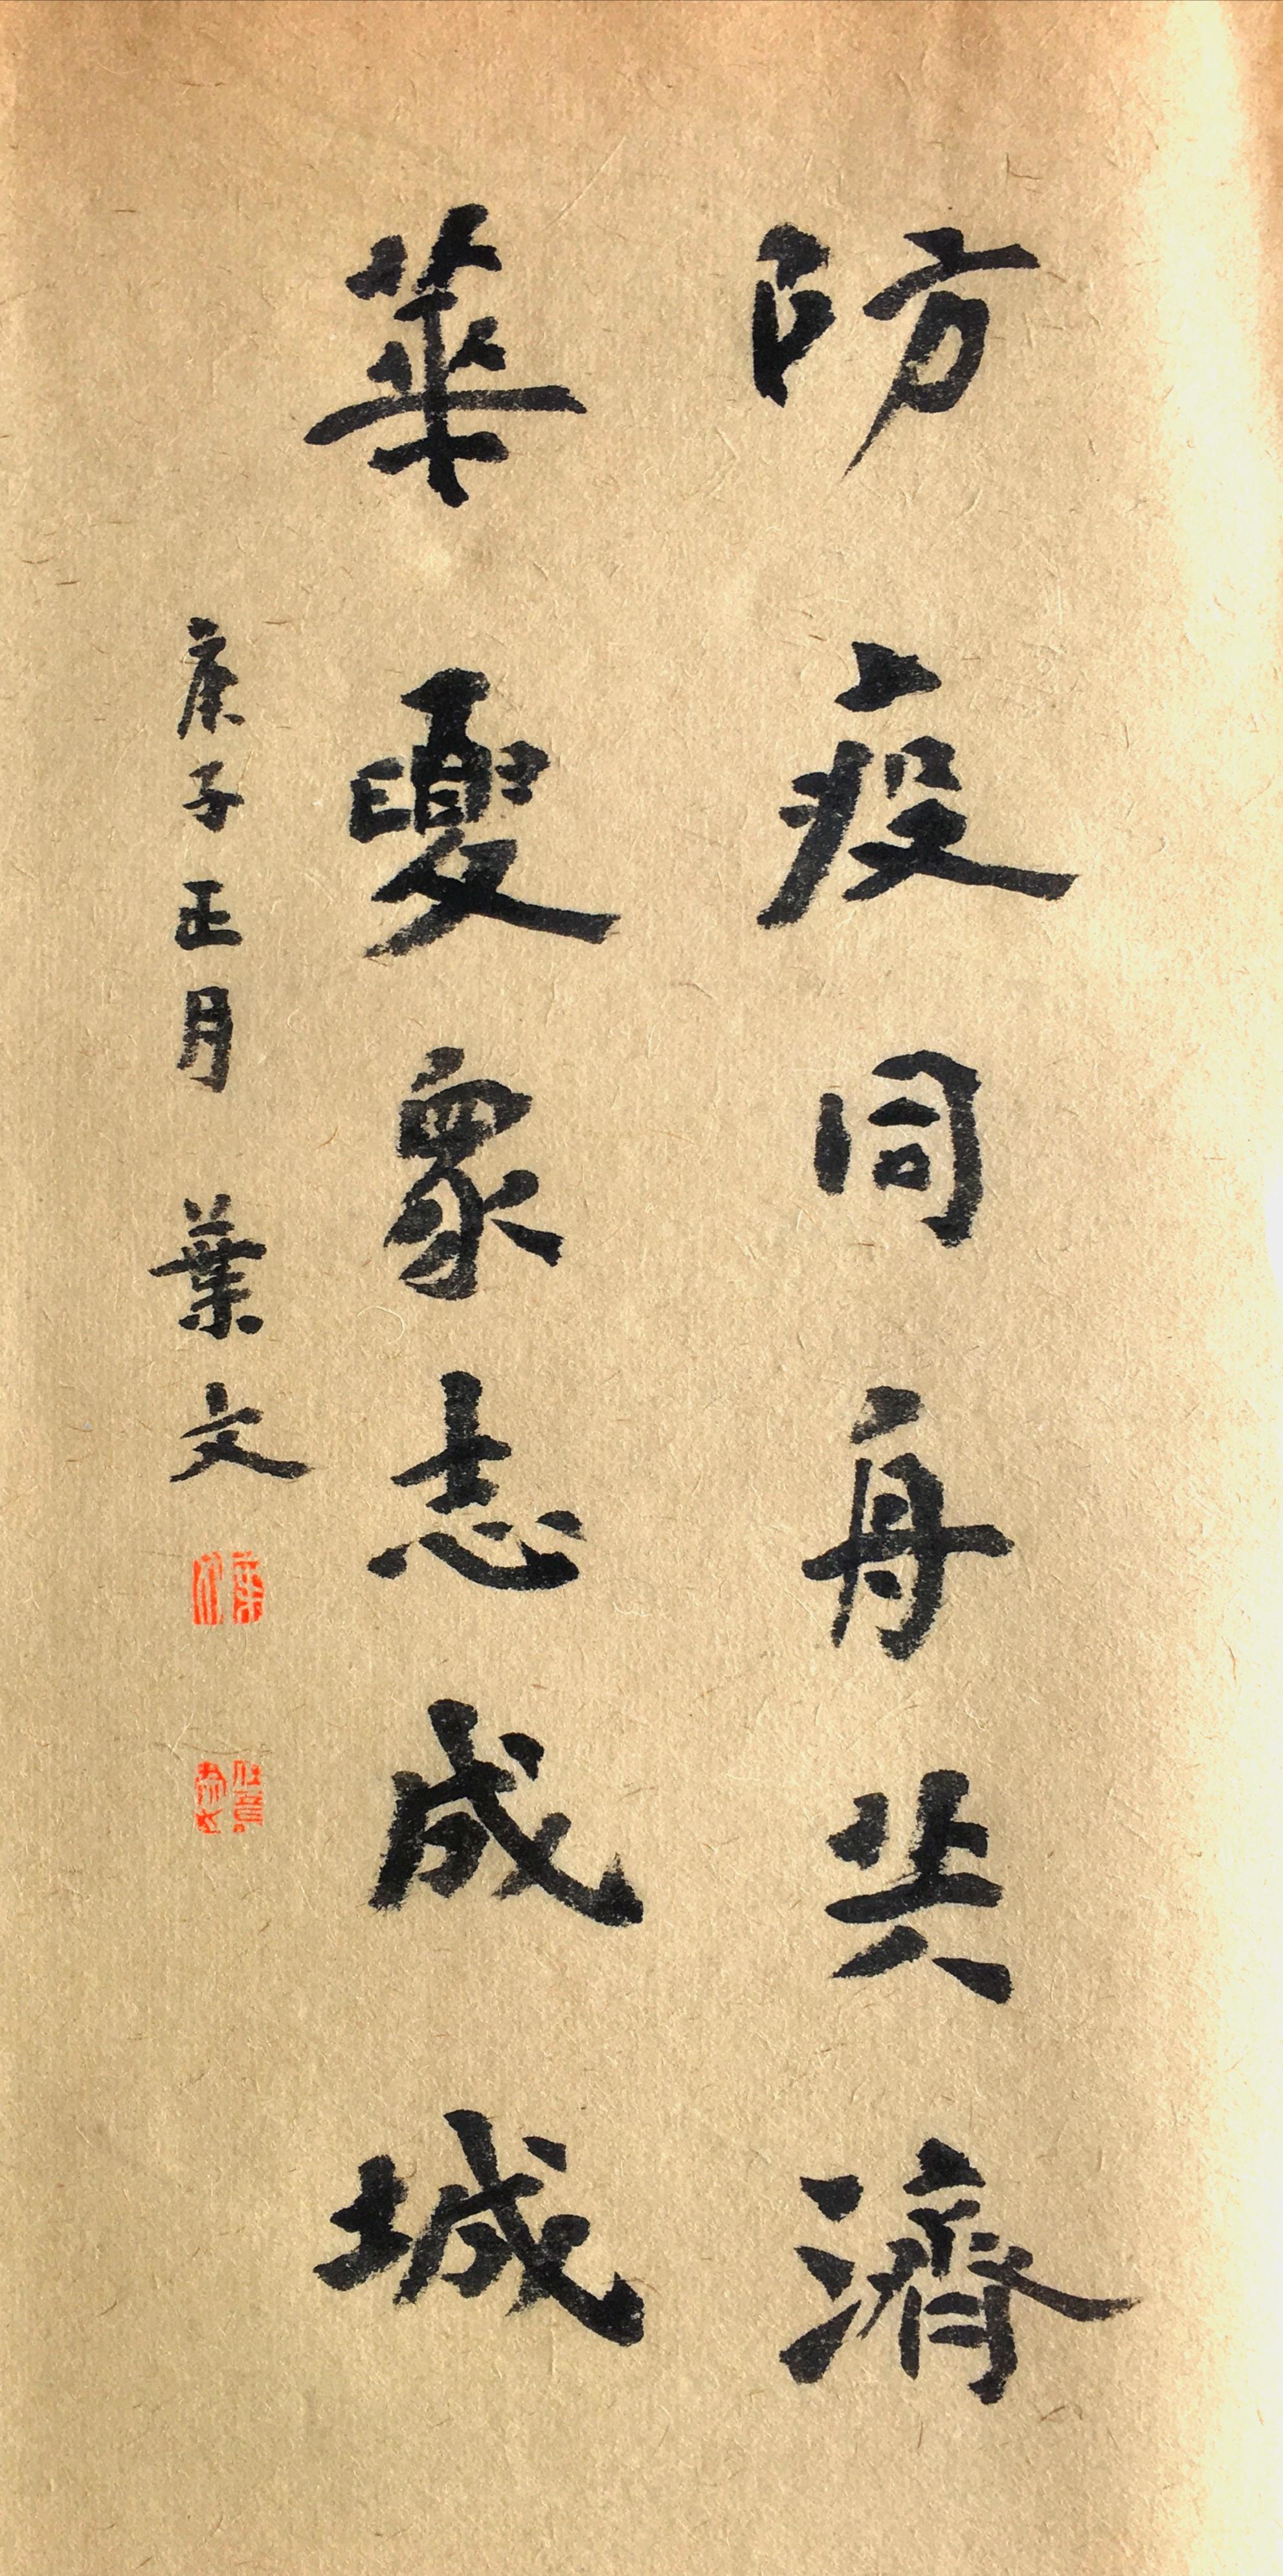 防疫同舟共濟
華夏衆志成城
庚子正月 葉文